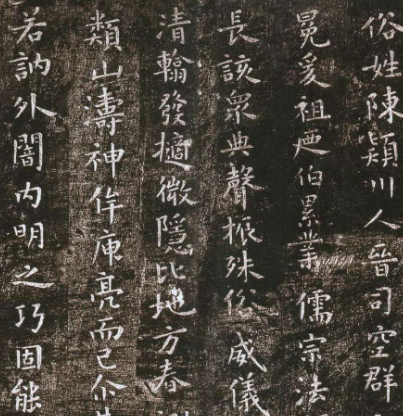 俗姓陳潁川人晉司空群
冕爰祖及伯累業儒宗法
長該眾典聲振殊俗威儀
清翰發擿微隱比地方春
類山濤神侔庾亮而已介
若訥外闇内明之巧固能